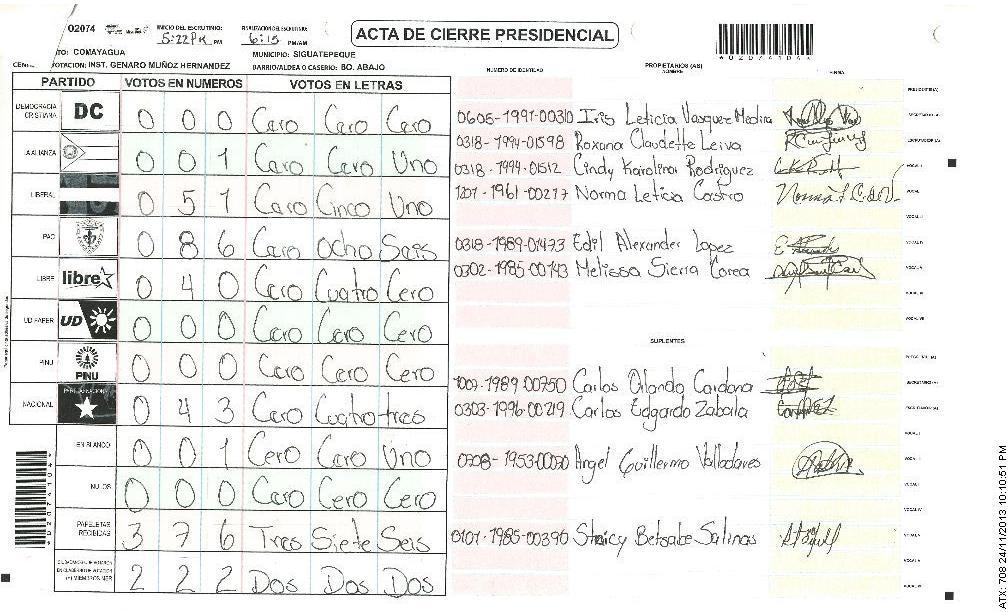 02074 INICIO DEL ESCRUTINIO: FINALIZACION DEL ESCRUTINIO:
5:22PM PM 6:15 PM/AM
ACTA DE CIERRE PRESIDENCIAL
TO: COMAYAGUA MUNICIPIO: SIGUATEPEQUE
CEN OTACION: INST. GENARO MUÑOZ HERNANDEZ BARRIO/ALDEA O CASERIO: BO. ABAJO
NUMERO DE IDENTIDAD PROPIETARIOS (AS) NOMBRE FIRMA
PARTIDO VOTOS EN NUMEROS VOTOS EN LETRAS
DEMOCRACIA CRISTIANA DC 0 0 0 Cero Cero Cero
LA ALIANZA 0 0 1 Cero Cero Uno
LIBERAL 0 5 1 Cero Cinco Uno
PAC 0 8 6 Cero Ocho Seis
LIBRE libre 0 4 0 Cero Cuatro Cero
UD FAPER UD 0 0 0 Cero Cero Cero
PINU PINU 0 0 0 Cero Cero Cero
NACIONAL 0 4 3 Cero Cuatro tres
EN BLANCO 0 0 1 Cero Cero Uno
NULOS 0 0 0 Cero Cero Cero
PAPELETAS RECIBIDAS 3 7 6 Tres Siete Seis
(+) MIEMBROS MER 2 2 2 Dos Dos Dos
0605-1991-00310 Iris Leticia Vasquez Medina
0318-1994-01598 Roxana Claudette Leiva
0318-1994-01512 Cindy Karolina Rodriguez
1201-1961-00217 Norma Leticia Castro
0318-1989-01473 Edil Alexander Lopez
0302-1985-00143 Melissa Sierra Corea
SUPLENTES
1009-1989-00750 Carlos Orlando Cardona
0303-1996-00219 Carlos Edgardo Zabala
0308-1953-0030 Angel Guillermo Valladares
0101-1985-00390 Staicy Betsabe Salinas
ATX: 708 24/11/2013 10:10:51 PM